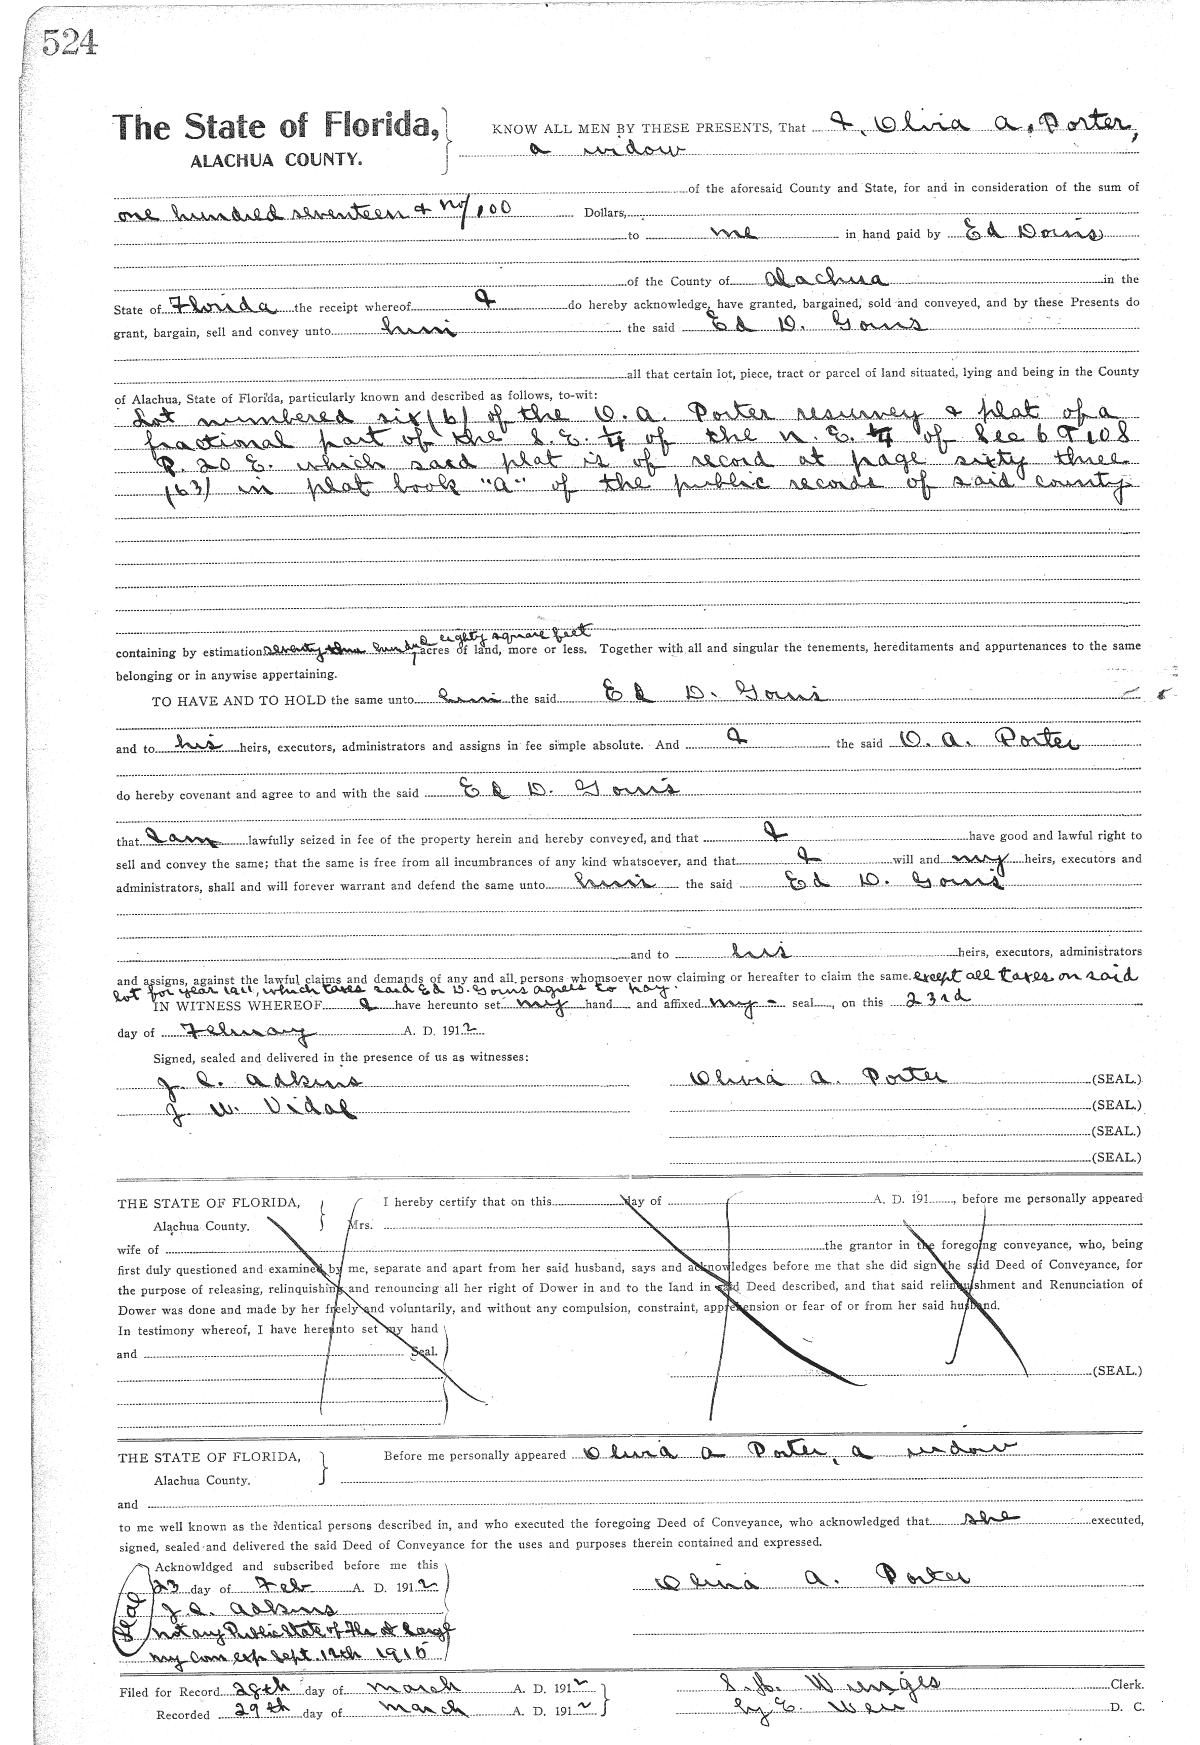 524
The State of Florida,
ALACHUA COUNTY.
KNOW ALL MEN BY THESE PRESENTS, That I, Olivia A. Porter,
a widow
of the aforesaid County and State, for and in consideration of the sum of
one hundred seventeen & no/100 Dollars,
to me in hand paid by Ed
of the County of Alachua in the
State of Florida the receipt whereof I do hereby acknowledge, have granted, bargained, sold and conveyed, and by these Presents do
grant, bargain, sell and convey unto him the said Ed D. Goins
all that certain lot, piece, tract or parcel of land situated, lying and being in the County
of Alachua, State of Florida, particularly known and described as follows, to-wit:
Lot numbered six (6) of the O. A. Porter resurvey & plat of a
fractional part of the S. E. 1/4 of the N. E. 1/4 of Sec 6 T 10 S
R. 20 E. which said plat is of record at page sixty three
(63) in plat book "A" of the public records of said county
eighty square feet
containing by estimation seventy acres of land, more or less. Together with all and singular the tenements, hereditaments and appurtenances to the same
belonging or in anywise appertaining.
TO HAVE AND TO HOLD the same unto him the said Ed D. Goins
and to his heirs, executors, administrators and assigns in fee simple absolute. And I the said O. A. Porter
do hereby covenant and agree to and with the said Ed D. Goins
that I am lawfully seized in fee of the property herein and hereby conveyed, and that I have good and lawful right to
sell and convey the same; that the same is free from all incumbrances of any kind whatsoever, and that I will and my heirs, executors and
administrators, shall and will forever warrant and defend the same unto him the said Ed D. Goins
and to his heirs, executors, administrators
and assigns, against the lawful claims and demands of any and all persons whomsoever now claiming or hereafter to claim the same. except all taxes on said
lot for year 1911, which taxes said Ed D. Goins agrees to pay.
IN WITNESS WHEREOF I have hereunto set my hand and affixed my seal, on this 23rd
day of February A. D. 1912
Signed, sealed and delivered in the presence of us as witnesses:
J. C. Adkins
Olivia A. Porter (SEAL.)
J. W. Vidal
(SEAL.)
(SEAL.)
(SEAL.)
THE STATE OF FLORIDA,
Alachua County.
I hereby certify that on this day of A. D. 191 , before me personally appeared
Mrs.
wife of the grantor in the foregoing conveyance, who, being
first duly questioned and examined by me, separate and apart from her said husband, says and acknowledges before me that she did sign the said Deed of Conveyance, for
the purpose of releasing, relinquishing and renouncing all her right of Dower in and to the land in said Deed described, and that said relinquishment and Renunciation of
Dower was done and made by her freely and voluntarily, and without any compulsion, constraint, apprehension or fear of or from her said husband.
In testimony whereof, I have hereunto set my hand
and Seal.
(SEAL.)
THE STATE OF FLORIDA,
Alachua County.
Before me personally appeared Olivia A Porter, a widow
and
to me well known as the identical persons described in, and who executed the foregoing Deed of Conveyance, who acknowledged that she executed,
signed, sealed and delivered the said Deed of Conveyance for the uses and purposes therein contained and expressed.
Acknowldged and subscribed before me this
23 day of Feb A. D. 1912
Olivia A. Porter
J. C. Adkins
Seal
Notary Public State of Fla at Large
my Com exp Sept. 12th 1915
Filed for Record 28th day of March A. D. 1912
S. H. Wienges Clerk.
Recorded 29th day of March A. D. 1912
by E. Weir D. C.